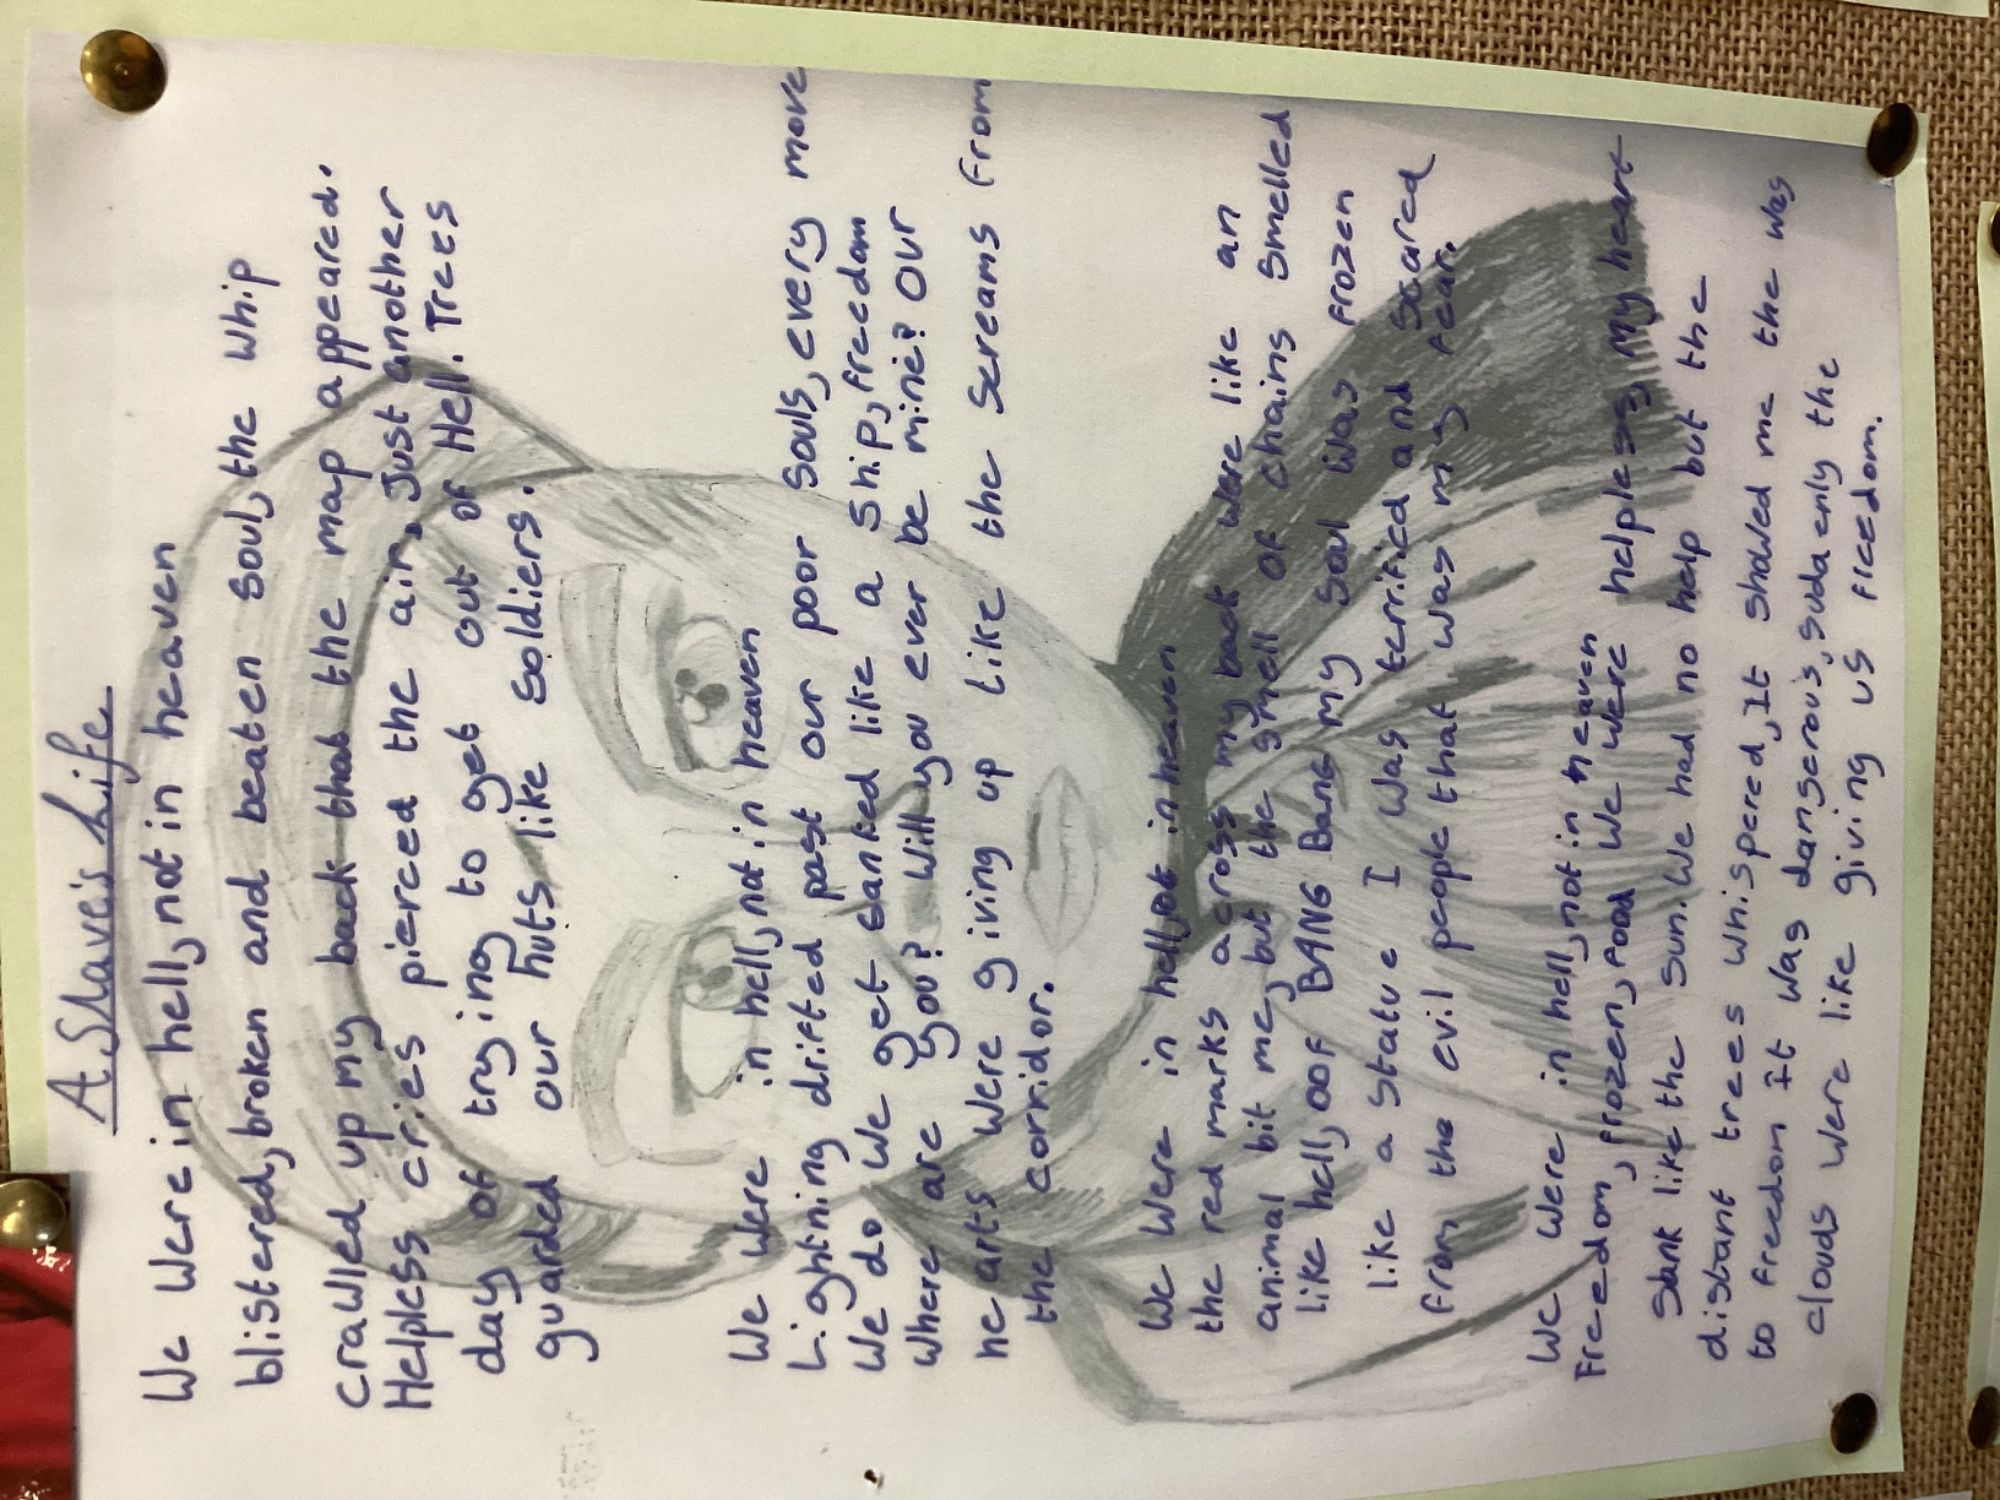 A Slave's Life
We were in hell, not in heaven
blistered, broken and beaten soul, the whip
crawled up my back that the map appeared.
Helpless cries pierced the air, Just another
day of trying to get out of Hell. Trees
guarded our huts like soldiers.
We were in hell, not in heaven
Lightning drifted past our poor souls, every more
We do we get sanked like a ship, freedom
where are you? will you ever be mine? Our
hearts were giving up like the screams from
the corridor.
We were in hell, not in heaven
the red marks across my back were like an
animal bit me, but the smell of chains smelled
like hell, OOF BANG Bang my soul was frozen
like a statue I was terrified and scared
from the evil people that was my fear.
We were in hell, not in heaven
Freedom, frozen, food we were helpless, my heart
sank like the sun. We had no help but the
distant trees whispered, It showed me the way
to freedom It was dangerous, suddenly the
clouds were like giving us freedom.